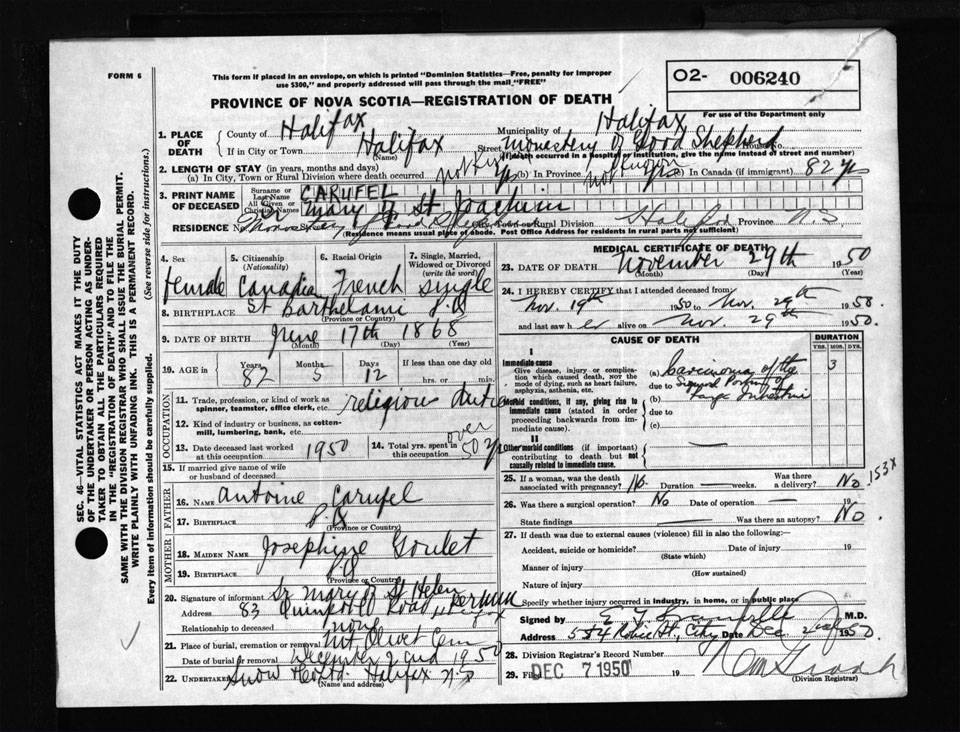 FORM 6
This form if placed in an envelope, on which is printed "Dominion Statistics—Free, penalty for improper
use $300," and properly addressed will pass through the mail "FREE"
O2- 006240
For use of the Department only
PROVINCE OF NOVA SCOTIA—REGISTRATION OF DEATH
1. PLACE OF DEATH
County of Halifax Municipality of Halifax
If in City or Town Halifax (Name) Street Monastery of Good Shepherd House No.
(If death occurred in a hospital or institution, give the name instead of street and number)
2. LENGTH OF STAY (in years, months and days)
(a) In City, Town or Rural Division where death occurred not known yrs (b) In Province not known yrs (c) In Canada (if immigrant) 82 yrs
3. PRINT NAME OF DECEASED
Surname or Last Name CARUFEL
All Given or Christian Names Mary of St Joachim
RESIDENCE No. Monastery of Good Shepherd City, Town or Rural Division Halifax Province N.S
(Residence means usual place of abode. Post Office Address for residents in rural parts not sufficient)
4. Sex
5. Citizenship (Nationality)
6. Racial Origin
7. Single, Married, Widowed or Divorced (write the word)
female Canadian French single
8. BIRTHPLACE St Barthelami P.Q
(Province or Country)
9. DATE OF BIRTH June 17th 1868
(Month) (Day) (Year)
10. AGE in Years 82 Months 5 Days 12 If less than one day old hrs. or min.
OCCUPATION
11. Trade, profession, or kind of work as spinner, teamster, office clerk, etc. religious duties
12. Kind of industry or business, as cotton-mill, lumbering, bank, etc.
13. Date deceased last worked at this occupation 1950
14. Total yrs. spent in this occupation over 50 yrs
15. If married give name of wife or husband of deceased
FATHER
16. NAME Antoine Carufel
17. BIRTHPLACE P.Q
(Province or Country)
MOTHER
18. MAIDEN NAME Josephine Goulet
19. BIRTHPLACE P.Q
(Province or Country)
20. Signature of informant Sr Mary of St Helen
Address 83 Quinpool Road Halifax
Relationship to deceased none
21. Place of burial, cremation or removal Mt Olivet Cem
Date of burial or removal December 2nd 1950
22. Undertaker Snow Co Ltd. Halifax N.S
(Name and address)
MEDICAL CERTIFICATE OF DEATH
23. DATE OF DEATH November 29th 1950
(Month) (Day) (Year)
24. I HEREBY CERTIFY that I attended deceased from
Nov. 19th 1950 to Nov. 29th 1950.
and last saw her alive on Nov. 29th 1950.
CAUSE OF DEATH
DURATION
YRS. MOS. DYS.
I
Immediate cause
Give disease, injury or complication which caused death, not the mode of dying, such as heart failure, asphyxia, asthenia, etc.
(a) Carcinoma of the 3
due to Sigmoid Portion of
Morbid conditions, if any, giving rise to immediate cause (stated in order proceeding backwards from immediate cause).
(b) Large Intestine
due to
(c)
II
Other morbid conditions (if important) contributing to death but not causally related to immediate cause.
25. If a woman, was the death associated with pregnancy? No. Duration — weeks. Was there a delivery? No
153X
26. Was there a surgical operation? No Date of operation — 19
State findings — Was there an autopsy? No.
27. If death was due to external causes (violence) fill in also the following:
Accident, suicide or homicide? Date of injury 19
(State which)
Manner of injury
(How sustained)
Nature of injury
Specify whether injury occurred in industry, in home, or in public place
Signed by M.D.
Address 554 Robie St, City Date Dec 1950
28. Division Registrar's Record Number
29. Filed DEC 7 1950 19
(Division Registrar)
SEC. 46—VITAL STATISTICS ACT MAKES IT THE DUTY
OF THE UNDERTAKER OR PERSON ACTING AS UNDER-
TAKER TO OBTAIN ALL THE PARTICULARS REQUIRED
IN THE "REGISTRATION OF DEATH" AND TO FILE THE
SAME WITH THE DIVISION REGISTRAR WHO SHALL ISSUE THE BURIAL PERMIT.
WRITE PLAINLY WITH UNFADING INK. THIS IS A PERMANENT RECORD.
Every item of information should be carefully supplied. (See reverse side for instructions.)